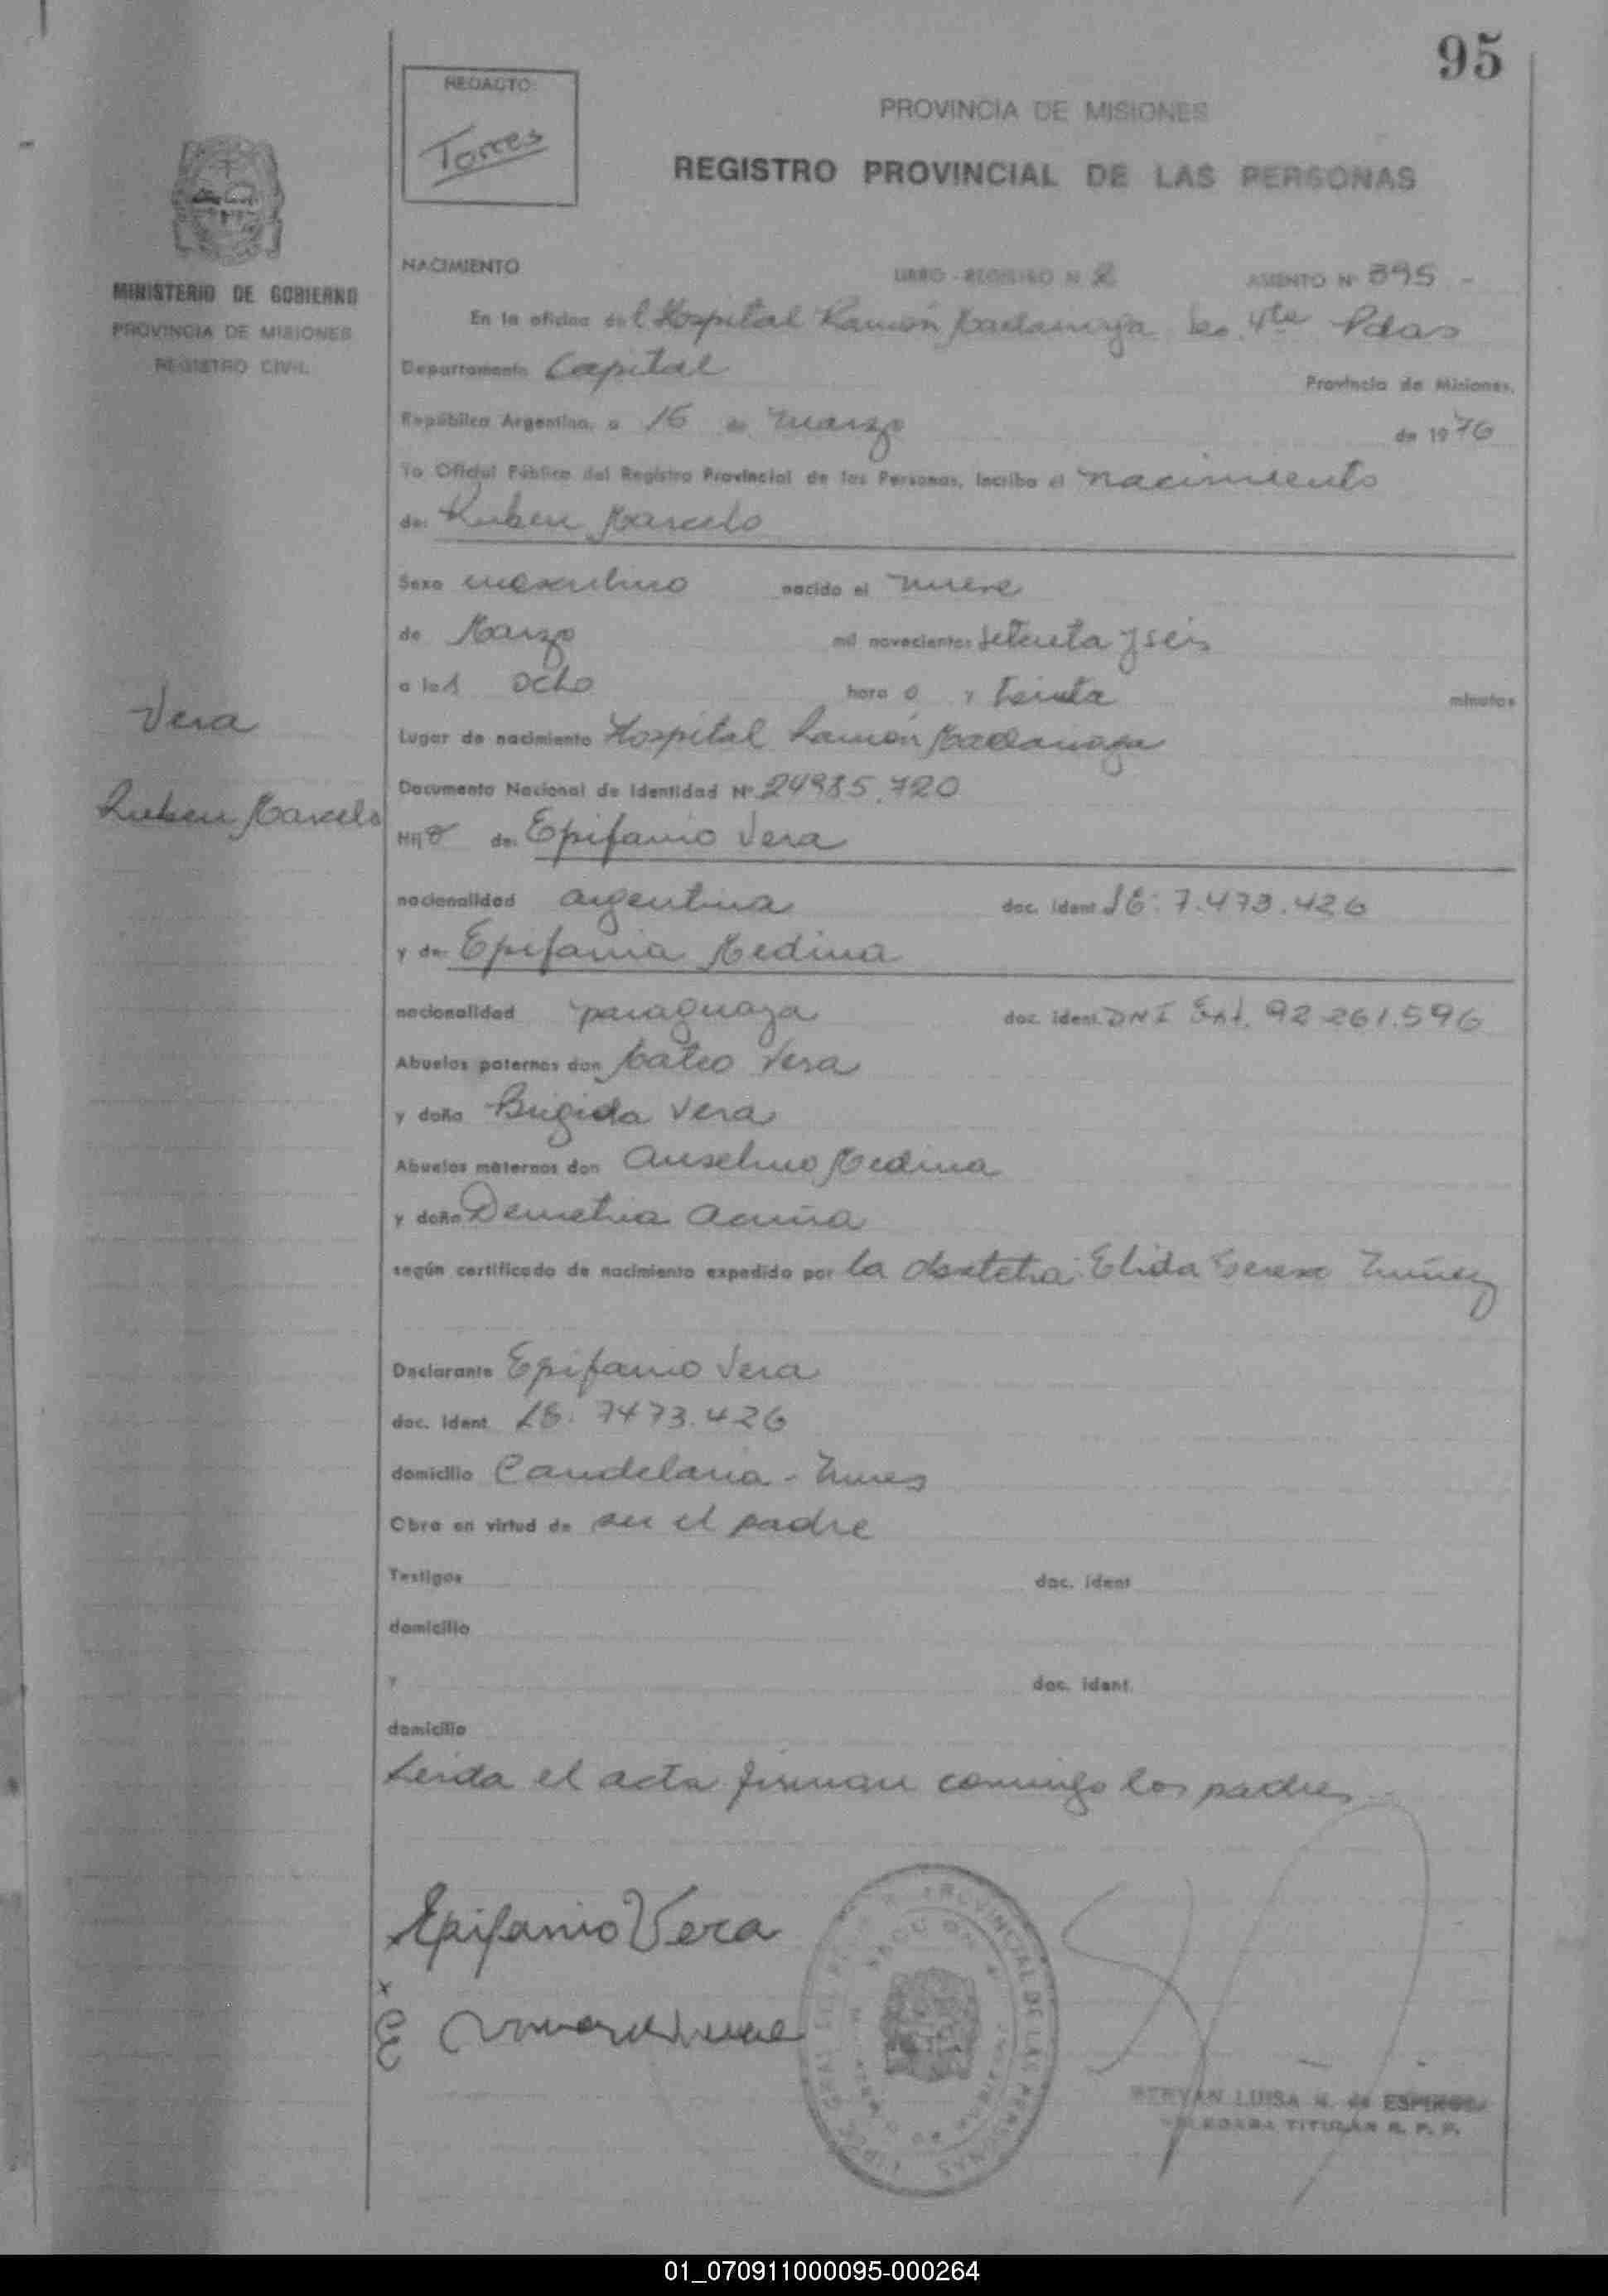 95
REDACTO:
Torres
PROVINCIA DE MISIONES
REGISTRO PROVINCIAL DE LAS PERSONAS
MINISTERIO DE GOBIERNO
PROVINCIA DE MISIONES
REGISTRO CIVIL
NACIMIENTO LIBRO - REGISTRO N 2 ASIENTO Nº 395 -
En la oficina del Hospital Ramón Madariaga Sec. 4ta Pdas
Departamento Capital Provincia de Misiones,
República Argentina, a 16 de marzo de 1976
Yo Oficial Público del Registro Provincial de las Personas, inscribo el nacimiento
de: Ruben Marcelo
Sexo masculino nacido el nueve
de Marzo mil novecientos setenta y seis
a las ocho hora o y treinta minutos
Vera
Ruben Marcelo
Lugar de nacimiento Hospital Ramón Madariaga
Documento Nacional de Identidad Nº 24985.720
Hijo de: Epifanio Vera
nacionalidad argentina doc. ident LE: 7.473.426
y de: Epifania Medina
nacionalidad paraguaya doc. ident. DNI Ext. 92.261.596
Abuelos paternos don Mateo Vera
y doña Brigida Vera
Abuelos maternos don Anselmo Medina
y doña Demetria Acuña
según certificado de nacimiento expedido por la obstetra Elida Teresa Nuñez
Declarante Epifanio Vera
doc. ident LE: 7473.426
domicilio Candelaria - Mnes
Obra en virtud de ser el padre
Testigos doc. ident
domicilio
y doc. ident.
domicilio
Leida el acta firman conmigo los padres
Epifanio Vera
PROVINCIAL DE LAS PERSONAS
LUISA N. de
TITULAR R. P. P.
01_070911000095-000264